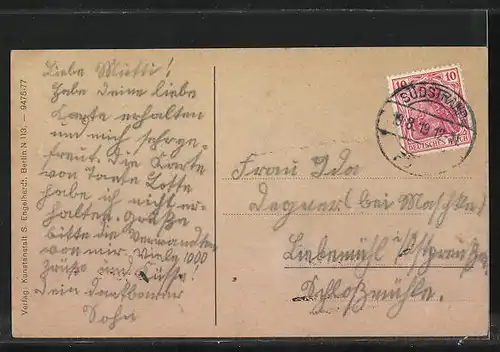 Liebe Mutti!
Habe deine liebe
Karte erhalten
und mich sehr ge-
freut. Die Karte
von Tante Lotte
habe ich nicht er-
halten. Grüße
bitte die Verwandten
von mir. Viele 1000
Grüße und Küsse!
Dein dankbarer
Sohn
Verlag: Kunstanstalt S. Engelhardt, Berlin N 113. — 9475/77
10 10
DEUTSCHES REICH
SÜDSTRAND
8.19.12
Frau Ida
(bei Maschke)
Liebemühl i/Ostpreußen
Schloßmühle.